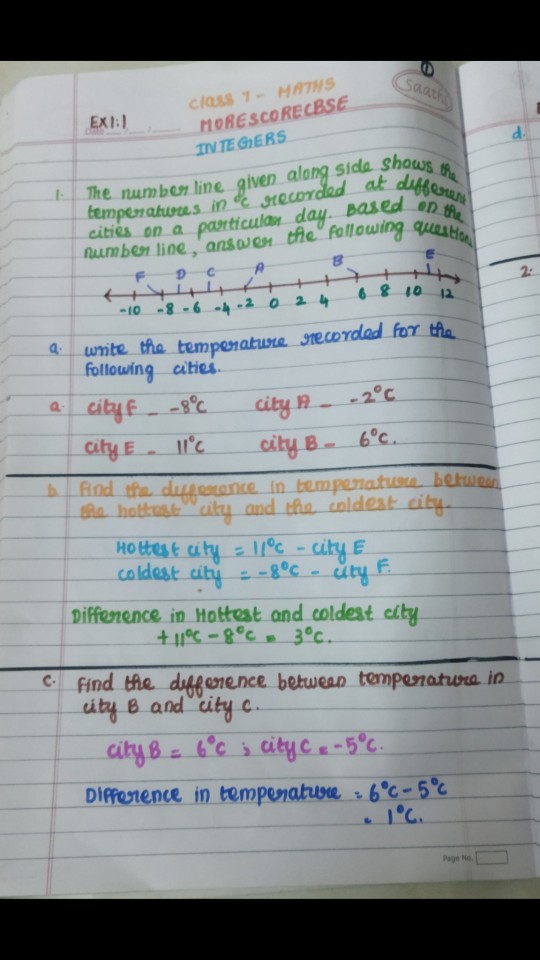 ①
Saathi
Class 7 - MATHS
EX 1:1
MORESCORECBSE
Date __/__/__
INTEGERS
1. The number line given along side shows the
temperatures in °c recorded at different
cities on a particular day. Based on the
number line, answer the following question
F D C A B E
-10 -8 -6 -4 -2 0 2 4 6 8 10 12
a. write the temperature recorded for the
following cities.
a. city F - -8°C city A - -2°C
city E - 11°C city B - 6°C.
b. Find the difference in temperature between
the hottest city and the coldest city.
Hottest city = 11°C - city E
coldest city = -8°C - city F.
Difference in Hottest and coldest city
+11°C - 8°C = 3°C.
c. Find the difference between temperature in
city B and city C.
city B = 6°C ; city C = -5°C.
Difference in temperature = 6°C - 5°C
= 1°C.
Page No.
d.
2.